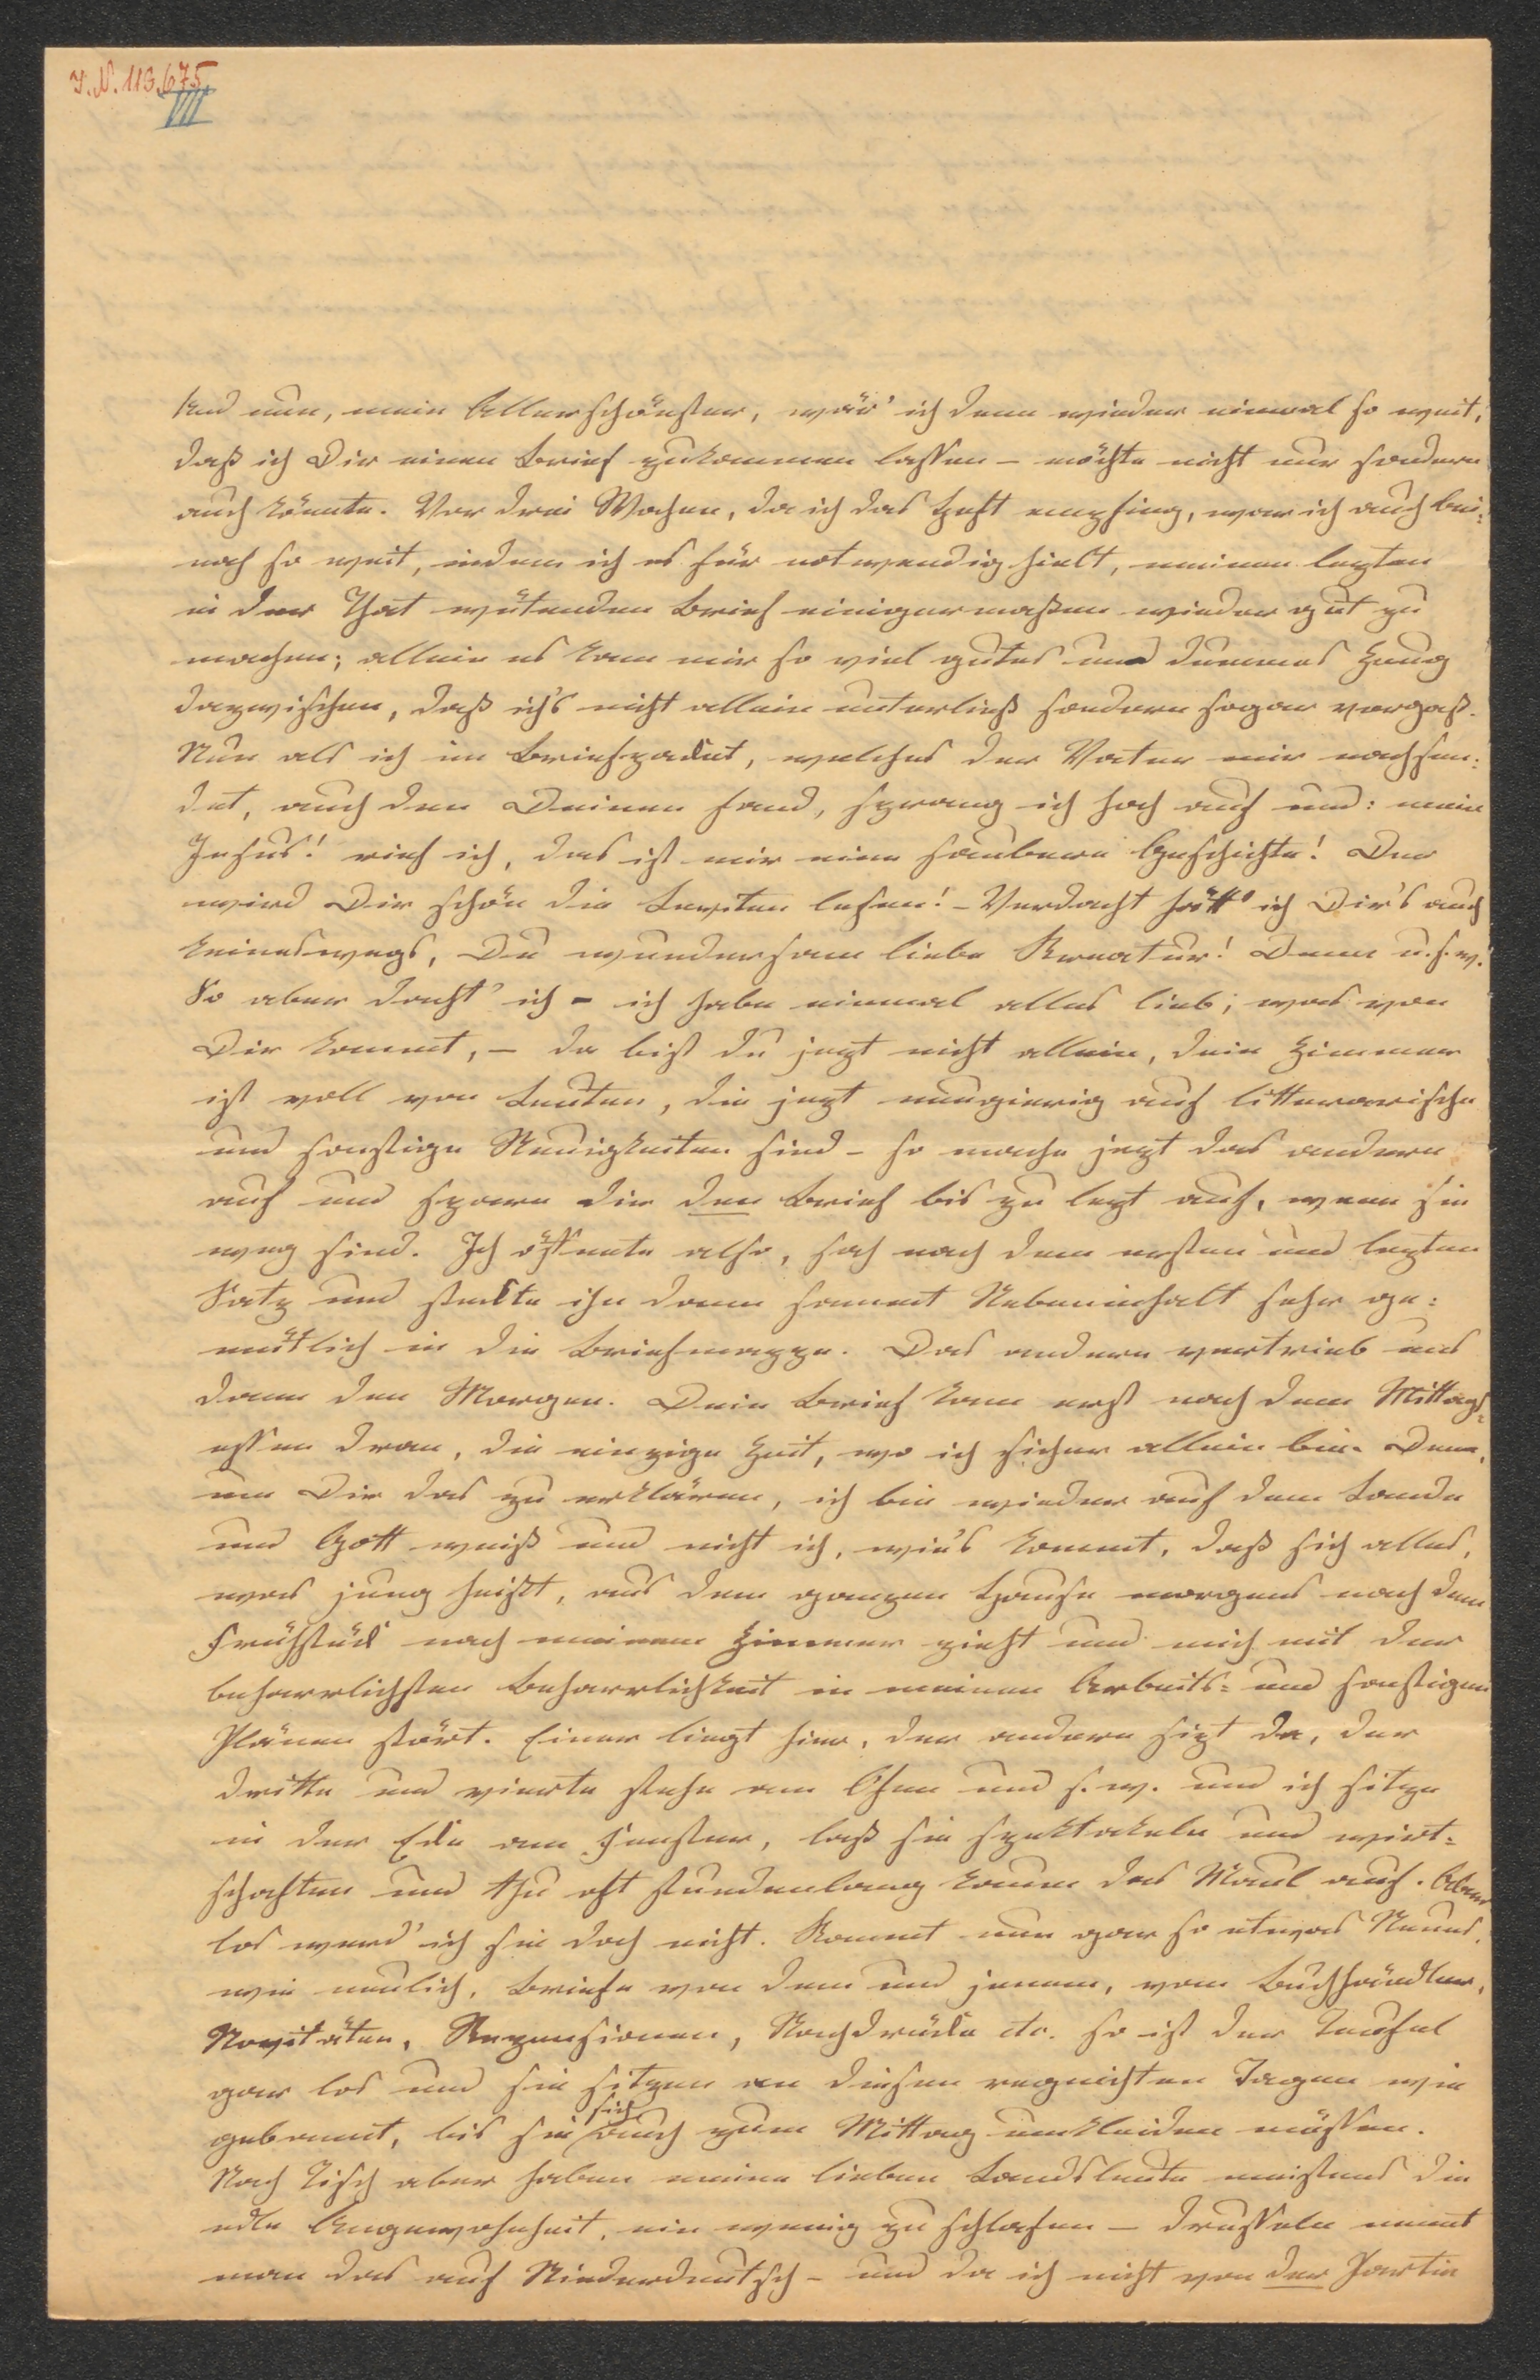 I.N. 113.675
VII
Und nun, mein Allerschönster, wär' ich denn wieder einmal so weit,
daß ich Dir einen Brief zukommen lassen – möchte nicht nur sondern
auch könnte. Vor drei Wochen, da ich das Heft empfing, war ich auch bei:
nah so weit, indem ich es für notwendig hielt, meinen lezten
in der That wütenden Brief einigermaßen wieder gut zu
machen; allein es kam mir so viel gutes und dummes Zeug
dazwischen, daß ich's nicht allein unterließ sondern sogar vergaß.
Nun als ich im Briefpacket, welches der Vater mir nachsen:
det, auch den Deinen fand, sprang ich hoch auf und: mein
Jesus! rief ich, das ist mir eine saubere Geschichte! Der
wird Dir schön die Leviten lesen! – Verdacht hätt' ich Dir's auch
keineswegs, Du wundersam liebe Kreatur! Denn u.s.w.
So aber dacht' ich – ich habe einmal alles lieb, was von
Dir kommt, – da bist du jezt nicht allein, dein Zimmer
ist voll von Leuten, die jezt neugierig auf litterarische
und sonstige Neuigkeiten sind – so mache jezt das andere
auf und spare dir den Brief bis zu lezt auf, wenn sie
weg sind. Ich öffnete also, sah nach dem ersten und lezten
Satz und steckte ihn dann sammt Nebeninhalt sehr ge:
mütlich in die Briefmappe. Das andere vertrieb uns
dann den Morgen. Dein Brief kam erst nach dem Mittags:
essen dran, die einzige Zeit, wo ich sicher allein bin. Denn,
um Dir das zu erklären, ich bin wieder auf dem Lande
und Gott weiß und nicht ich, wie's kommt, daß sich alles,
was jung heißt, aus dem ganzen Hause morgens nach dem
Frühstück nach meinem Zimmer zieht und mich mit der
beharrlichsten Beharrlichkeit in meinen Arbeits= und sonstigen
Plänen stört. Einer liegt hier, der andere sizt da, der
dritte und vierte stehe am Ofen und s.w. und ich sitze
in der Ecke am Fenster, laß sie spektakeln und wirt=
schaften und thu oft stundenlang kaum das Maul auf. Aber
los werd' ich sie doch nicht. Kommt nun gar so etwas Neues,
wie neulich, Briefe von dem und jenem, vom Buchhändler,
Novitäten, Rezensionen, Nachdrücke etc. so ist der Teufel
gar los und sie sitzen an diesen regnichten Tagen wie
gebannt, bis sie sich auch zum Mittag umkleiden müssen.
Nach Tisch aber haben meine lieben Landsleute meistens die
edle Angewohnheit, ein wenig zu schlafen – drusseln nennt
man das auf Niederdeutsch – und da ich nicht von der Partie